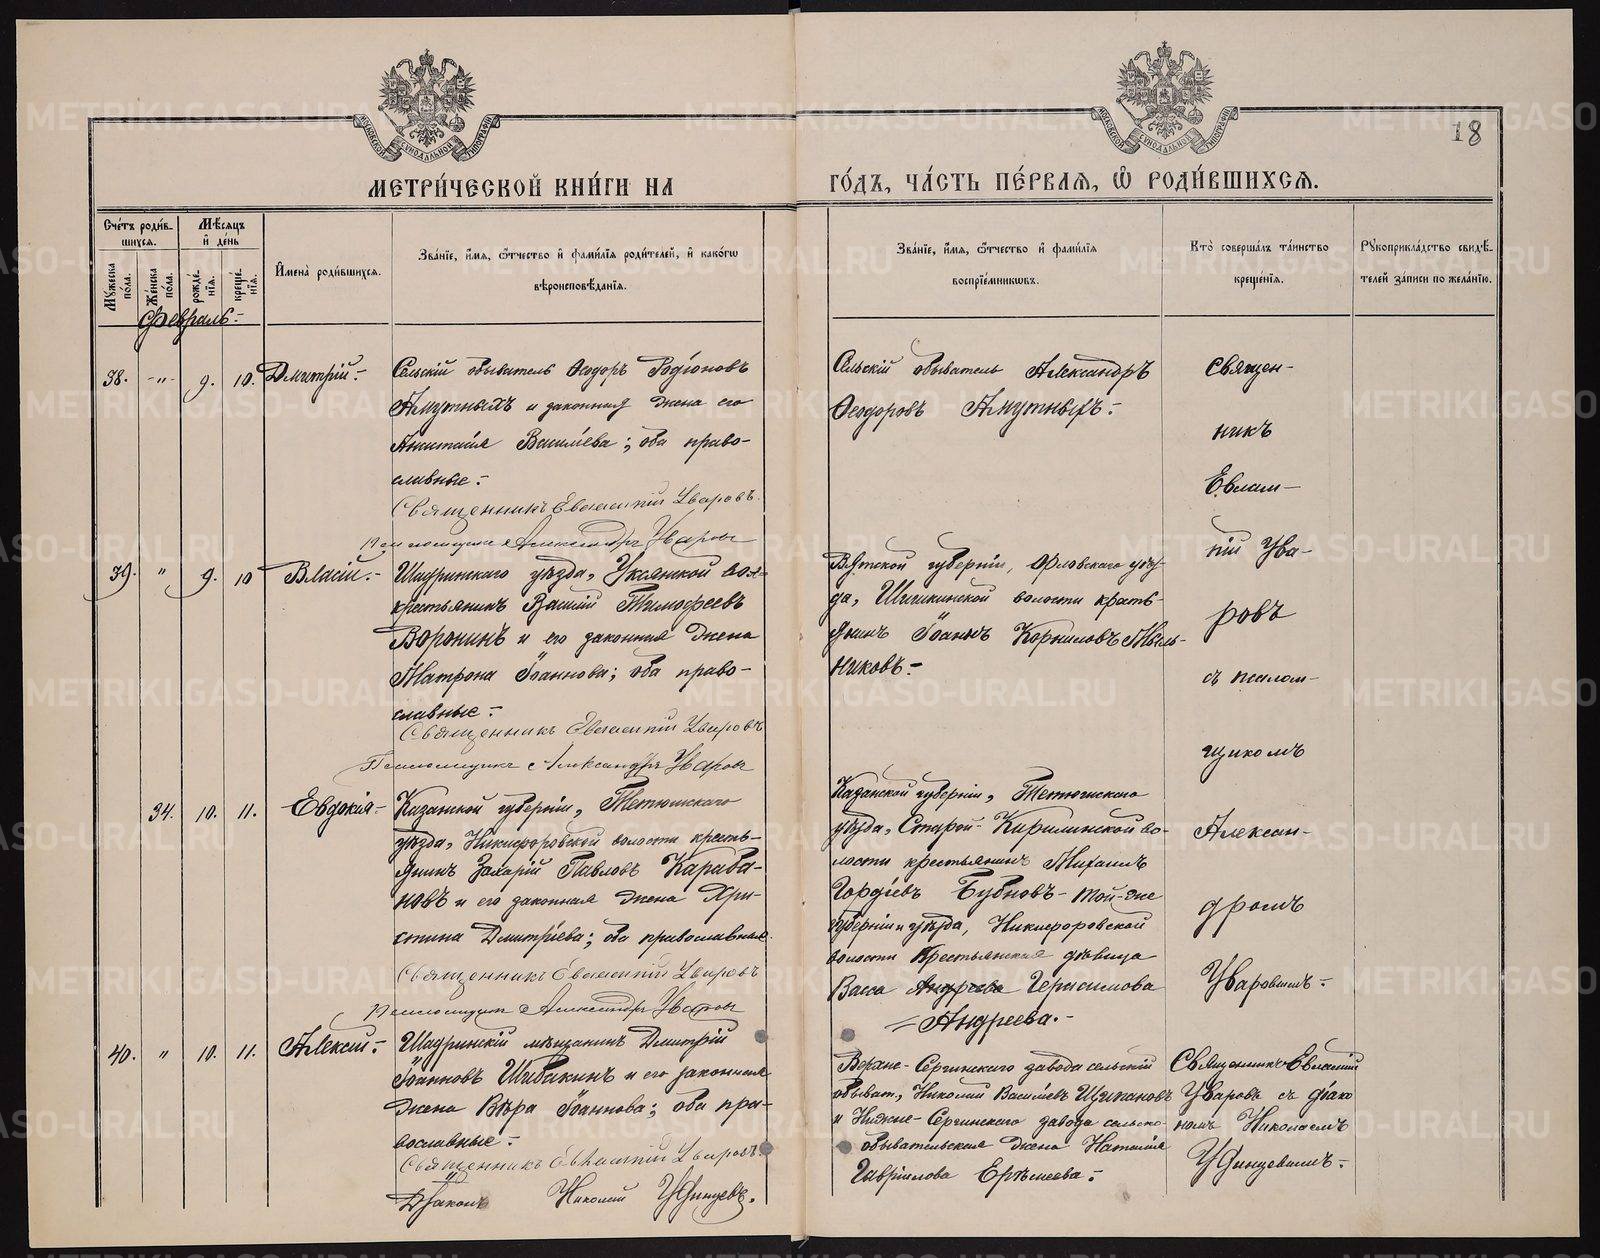 18
МЕТРИ́ЧЕСКОЙ КНИ́ГИ НА
ГО́ДЪ, ЧА́СТЬ ПЕ́РВАѦ, Ѡ҆ РОДИ́ВШИХСѦ.
Сче́тъ роди́в-
шихсѧ.
Мѣ́сѧцъ
и҆ де́нь
Мꙋ́жеска по́ла.
Же́нска по́ла.
рожде́-
нїѧ.
креще́-
нїѧ.
И҆мена̀ роди́вшихсѧ.
Зва́нїе, и҆́мѧ, ѻ҆́тчество и҆ фамѝлїѧ роди́телей, и҆ како́гѡ
вѣроисповѣ́данїѧ.
Зва́нїе, и҆́мѧ, ѻ҆́тчество и҆ фами́лїѧ
воспрїе́мникѡвъ.
Кто̀ соверша́лъ та́инство
креще́нїѧ.
Рꙋкоприкла́дство свидѣ́-
телей за́писи по жела́нїю.
Февраль:-
38. -"- 9. 10. Дмитрій:-
Сельскій обыватель Ѳеодоръ Родіоновъ
Язпутныхъ и законная жена его
Анастасія Василіева; оба право-
славные:-
Священникъ Евлампій Уваровъ.
Псаломщикъ Александръ Уваровъ
Сельскій обыватель Александръ
Ѳеодоровъ
39. " 9. 10 Власій.-
Шадринскаго уѣзда, Уксянской вол.
крестьянинъ Василій Тимофеевъ
Воронинъ и его законная жена
Матрона Іоаннова; оба право-
славные:-
Священникъ Евлампій Уваровъ
Псаломщикъ Александръ Уваровъ
Вятской губерніи, Орловскаго уѣз-
да, волости кресть-
янинъ Іоаннъ Корниловъ Мель-
никовъ:-
34. 10. 11. Евдокія-
Казанской губерніи, Тетюшскаго
уѣзда, Никифоровской волости кресть-
янинъ Захарій Павловъ Караба-
новъ и его законная жена Хри-
стина Дмитріева; оба православные.
Священникъ Евлампій Уваровъ
Псаломщикъ Александръ Уваровъ
Казанской губерніи, Тетюшскаго
уѣзда, Старой-Кирилинской во-
лости крестьянинъ Михаилъ
Гордіевъ Бубновъ - той-же
губерніи и уѣзда, Никифоровской
волости Крестьянская дѣвица
Васса Андреева Герасимова
= Андреева.-
Священ-
никъ
Евлам-
пій Ува-
ровъ
съ псалом-
щикомъ
Алексан-
дромъ
Уваровымъ:-
40. " 10. 11. Алексій:-
Шадринскій мѣщанинъ Дмитрій
Іоанновъ Шибакинъ и его законная
жена Вѣра Іоаннова; оба пра-
вославные:-
Священникъ Евлампій Уваровъ.
Діаконъ Николай Удинцевъ.
Верхне-Сергинскаго завода сельскій
обыват., Николай Василіевъ Щипановъ
и Нижне-Сергинскаго завода сельско-
обывательская жена Наталія
Гавріилова Еремеева:-
Священникъ Евлампій
Уваровъ съ діако-
номъ Николаемъ
Удинцевымъ:-
METRIKI.GASO-URAL.RU